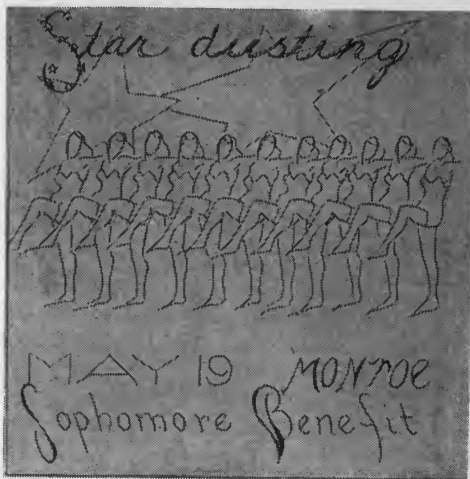 Star dusting
MAY 19 MONroe
Sophomore Benefit